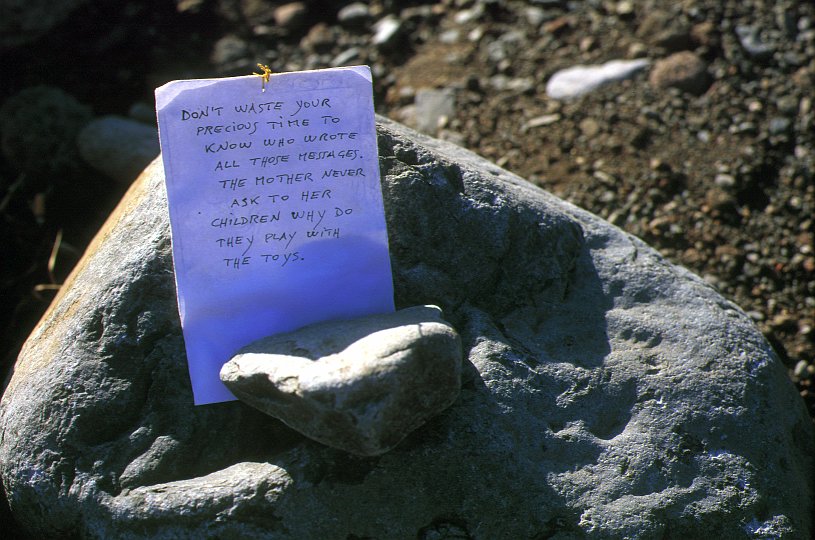 DON'T WASTE YOUR
PRECIOUS TIME TO
KNOW WHO WROTE
ALL THOSE MESSAGES.
THE MOTHER NEVER
ASK TO HER
CHILDREN WHY DO
THEY PLAY WITH
THE TOYS.